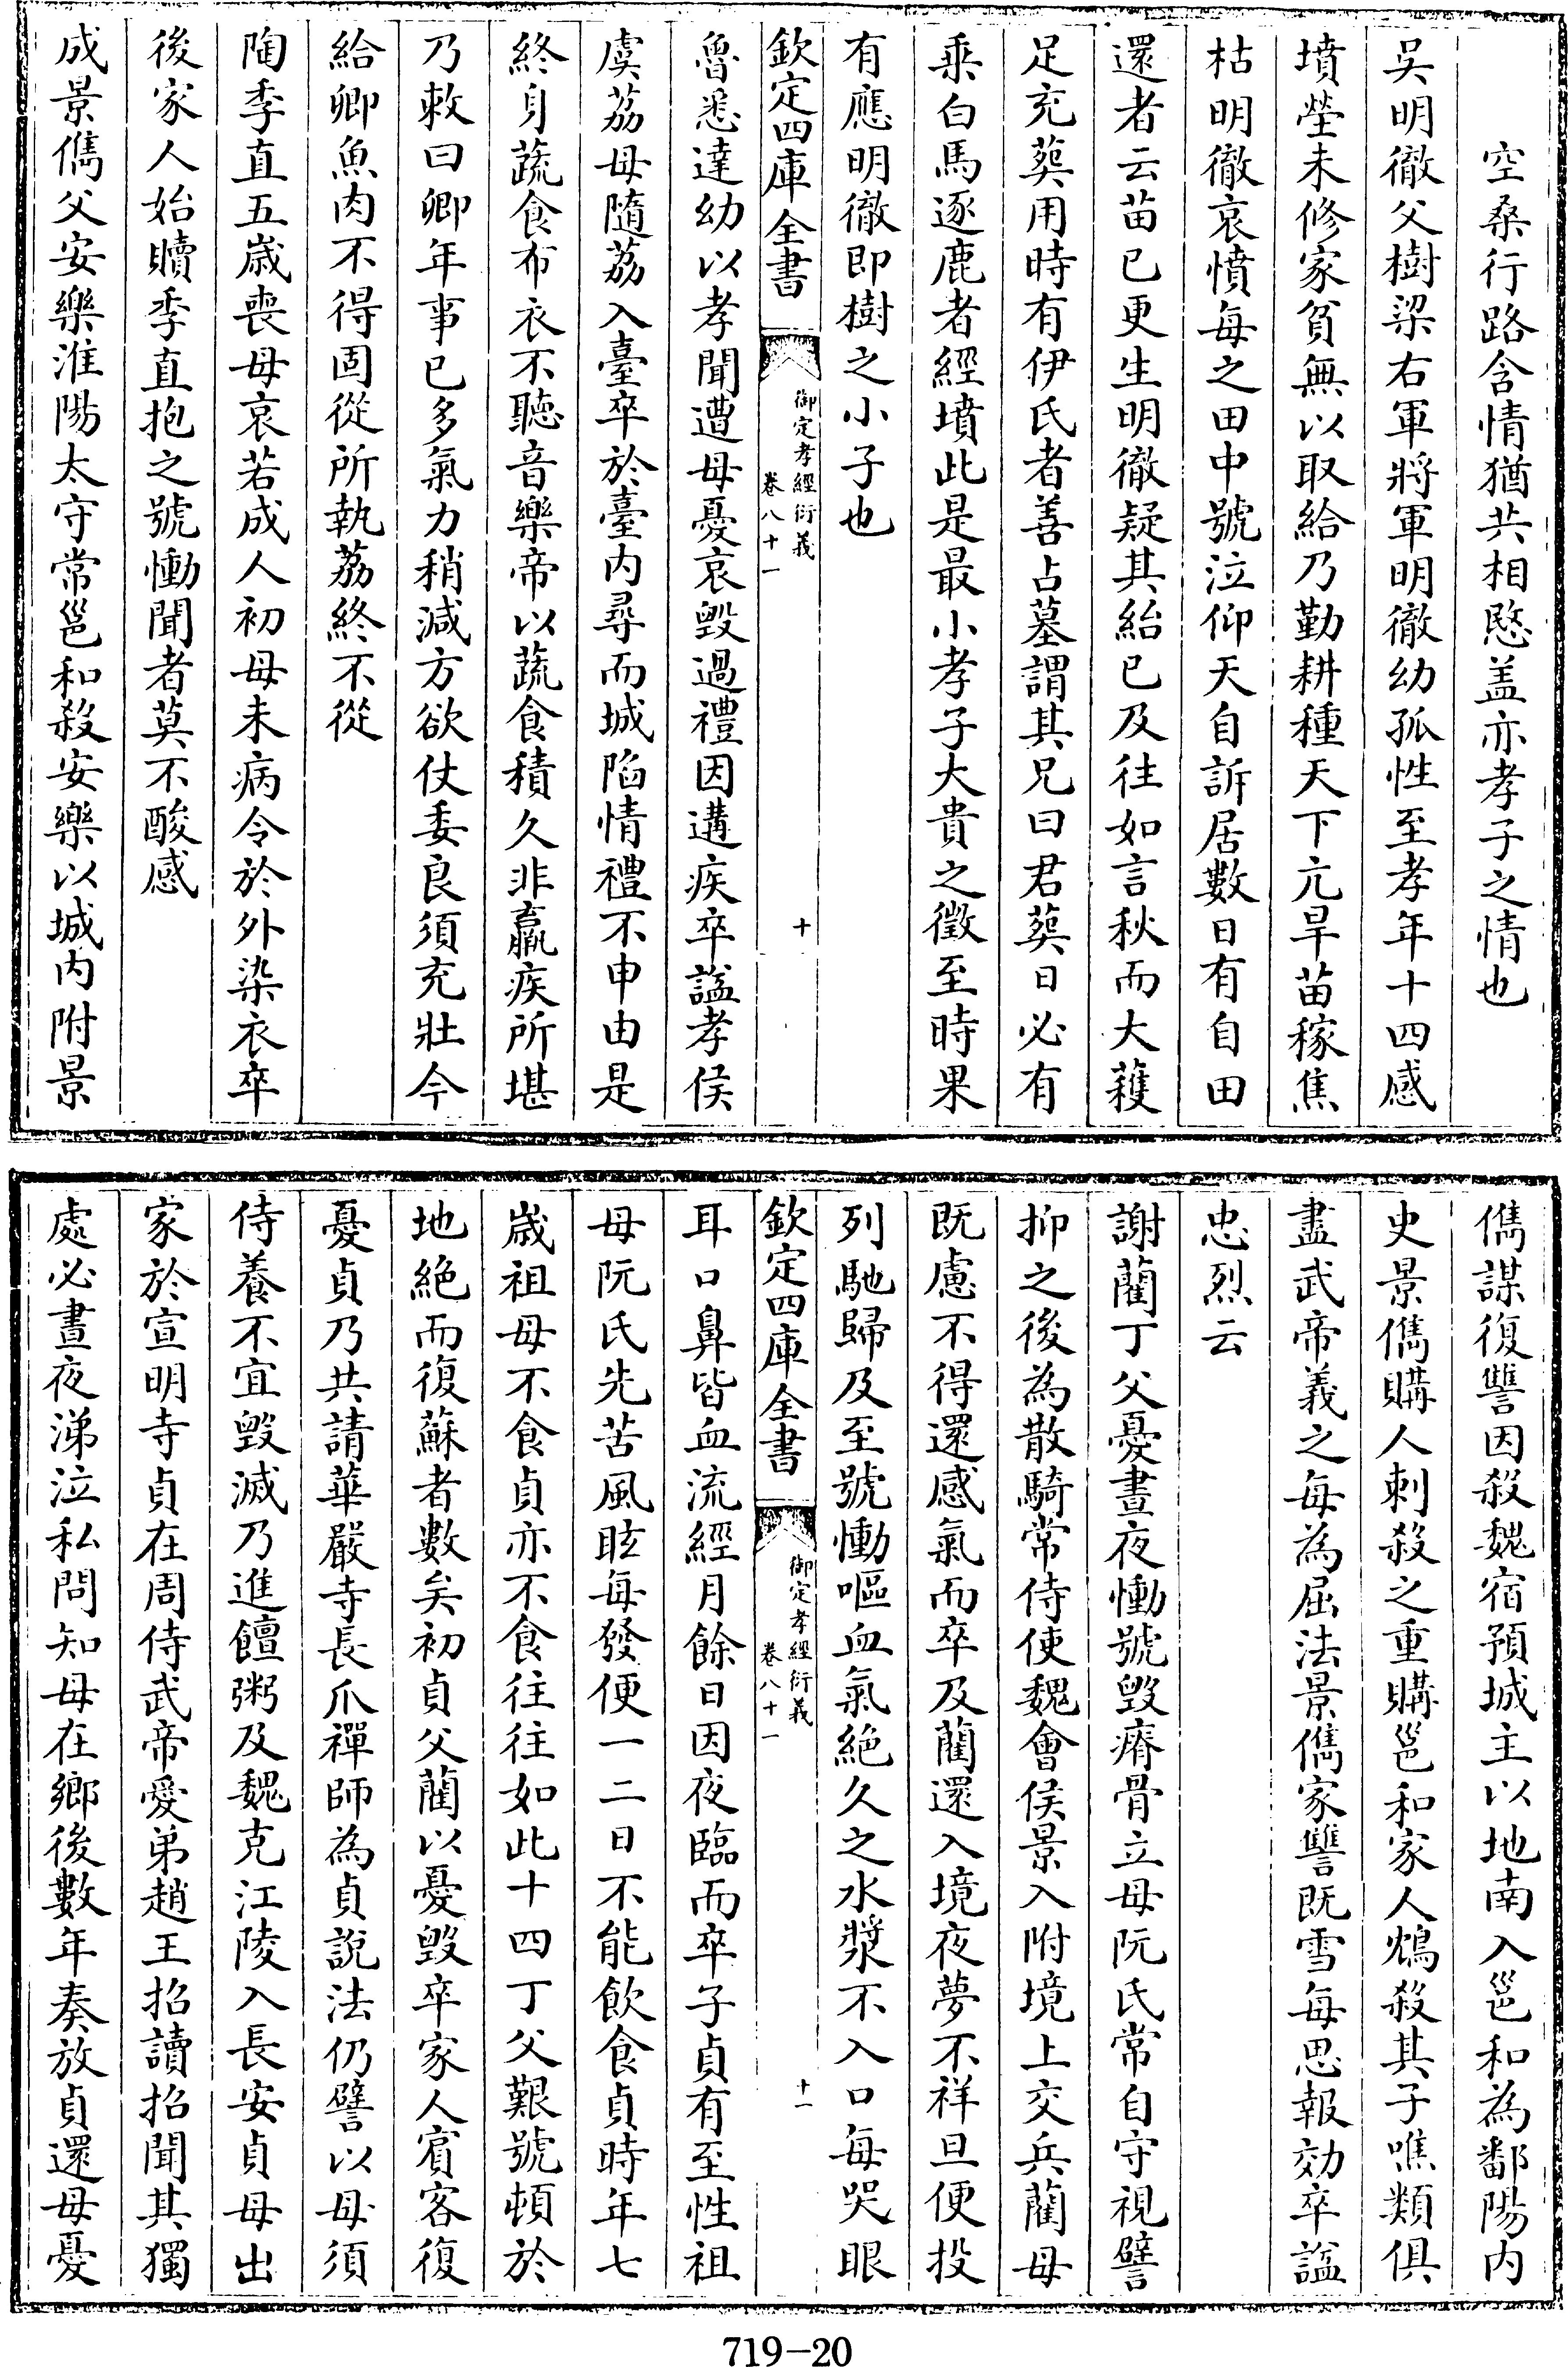 空桑行路含情猶共相愍盖亦孝子之情也
吳明徹父樹梁右軍將軍明徹幼孤性至孝年十四感
墳塋未修家貧無以取給乃勤耕種天下亢旱苗稼焦
枯明徹哀憤每之田中號泣仰天自訴居數日有自田
還者云苗已更生明徹疑其紿已及往如言秋而大穫
足充葬用時有伊氏者善占墓謂其兄曰君葬日必有
乘白馬逐鹿者經墳此是最小孝子大貴之徵至時果
有應明徹即樹之小子也
欽定四庫全書
御定孝經衍義
卷八十一
十
魯悉達幼以孝聞遭母憂哀毀過禮因遘疾卒諡孝侯
虞荔母隨荔入臺卒於臺內尋而城陷情禮不申由是
終身蔬食布衣不聽音樂帝以蔬食積久非羸疾所堪
乃敕曰卿年事已多氣力稍減方欲仗委良須充壯今
給卿魚肉不得固從所執荔終不從
陶季直五歲喪母哀若成人初母未病令於外染衣卒
後家人始贖季直抱之號慟聞者莫不酸感
成景儁父安樂淮陽太守常邕和殺安樂以城內附景
儁謀復讐因殺魏宿預城主以地南入邕和為鄱陽內
史景儁購人刺殺之重購邕和家人鴆殺其子噍類俱
盡武帝義之每為屈法景儁家讐既雪每思報効卒諡
忠烈云
謝藺丁父憂晝夜慟號毀瘠骨立母阮氏常自守視譬
抑之後為散騎常侍使魏會侯景入附境上交兵藺母
既慮不得還感氣而卒及藺還入境夜夢不祥旦便投
列馳歸及至號慟嘔血氣絕久之水漿不入口每哭眼
欽定四庫全書
御定孝經衍義
卷八十一
十一
耳口鼻皆血流經月餘日因夜臨而卒子貞有至性祖
母阮氏先苦風眩每發便一二日不能飲食貞時年七
歲祖母不食貞亦不食往往如此十四丁父艱號頓於
地絕而復蘇者數矣初貞父藺以憂毀卒家人賓客復
憂貞乃共請華嚴寺長爪禪師為貞說法仍譬以母須
侍養不宜毀滅乃進饘粥及魏克江陵入長安貞母出
家於宣明寺貞在周侍武帝愛弟趙王招讀招聞其獨
處必晝夜涕泣私問知母在鄉後數年奏放貞還母憂
719-20